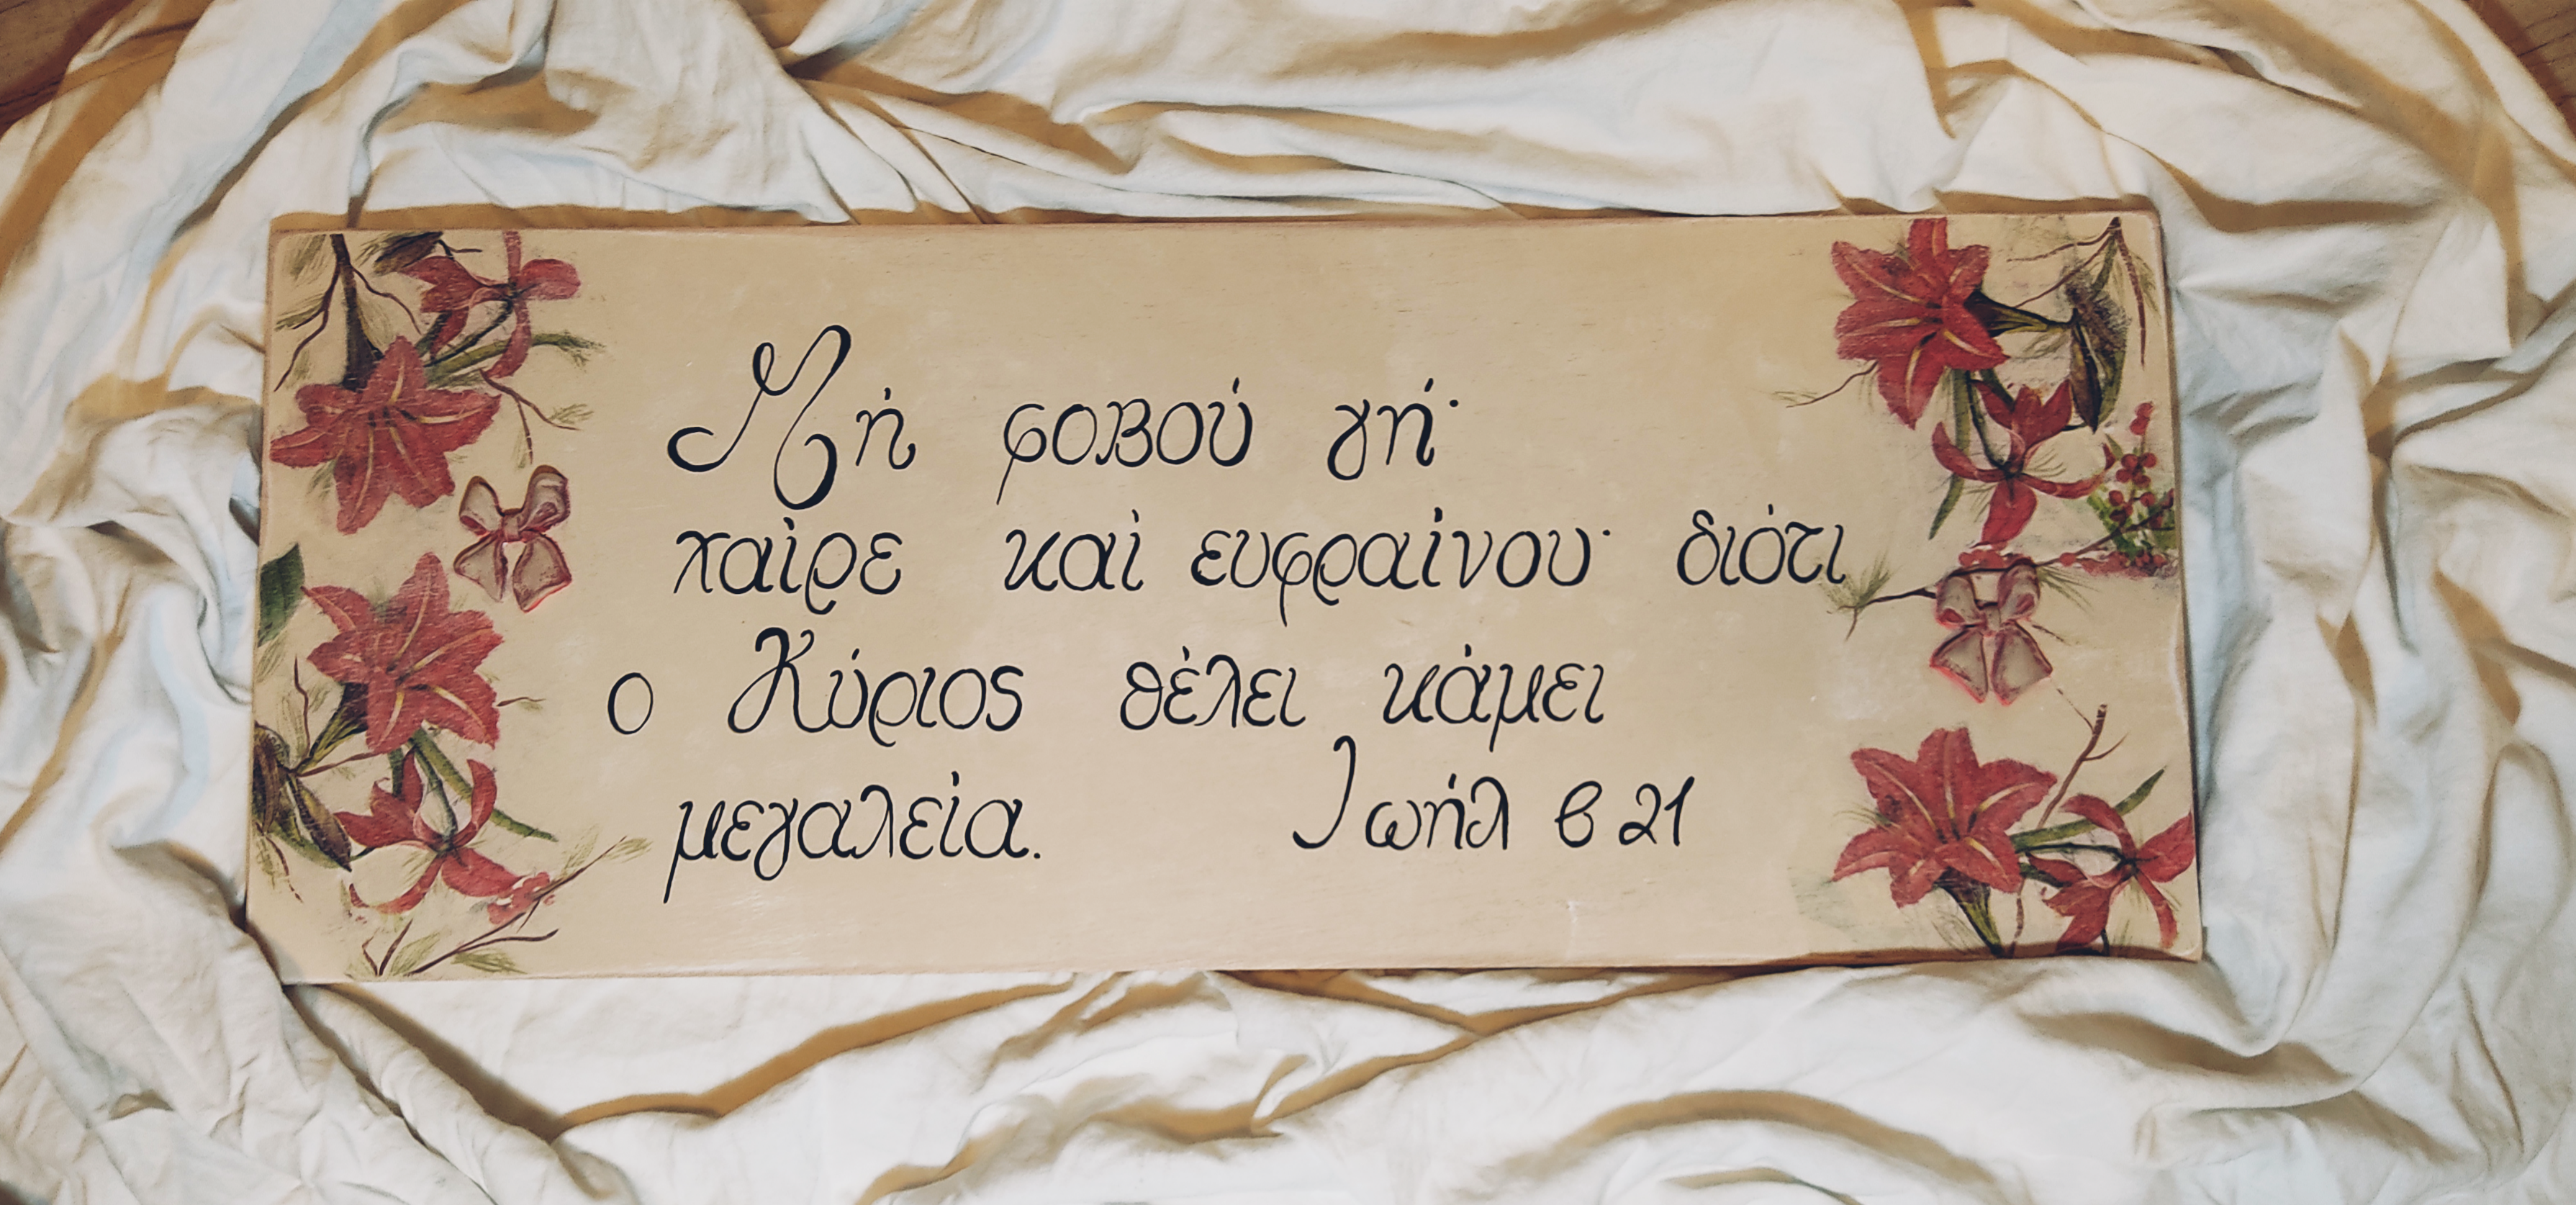 Μή φοβού γή·
χαίρε καί ευφραίνου· διότι
ο Κύριος θέλει κάμει
μεγαλεία. Ιωήλ β 21